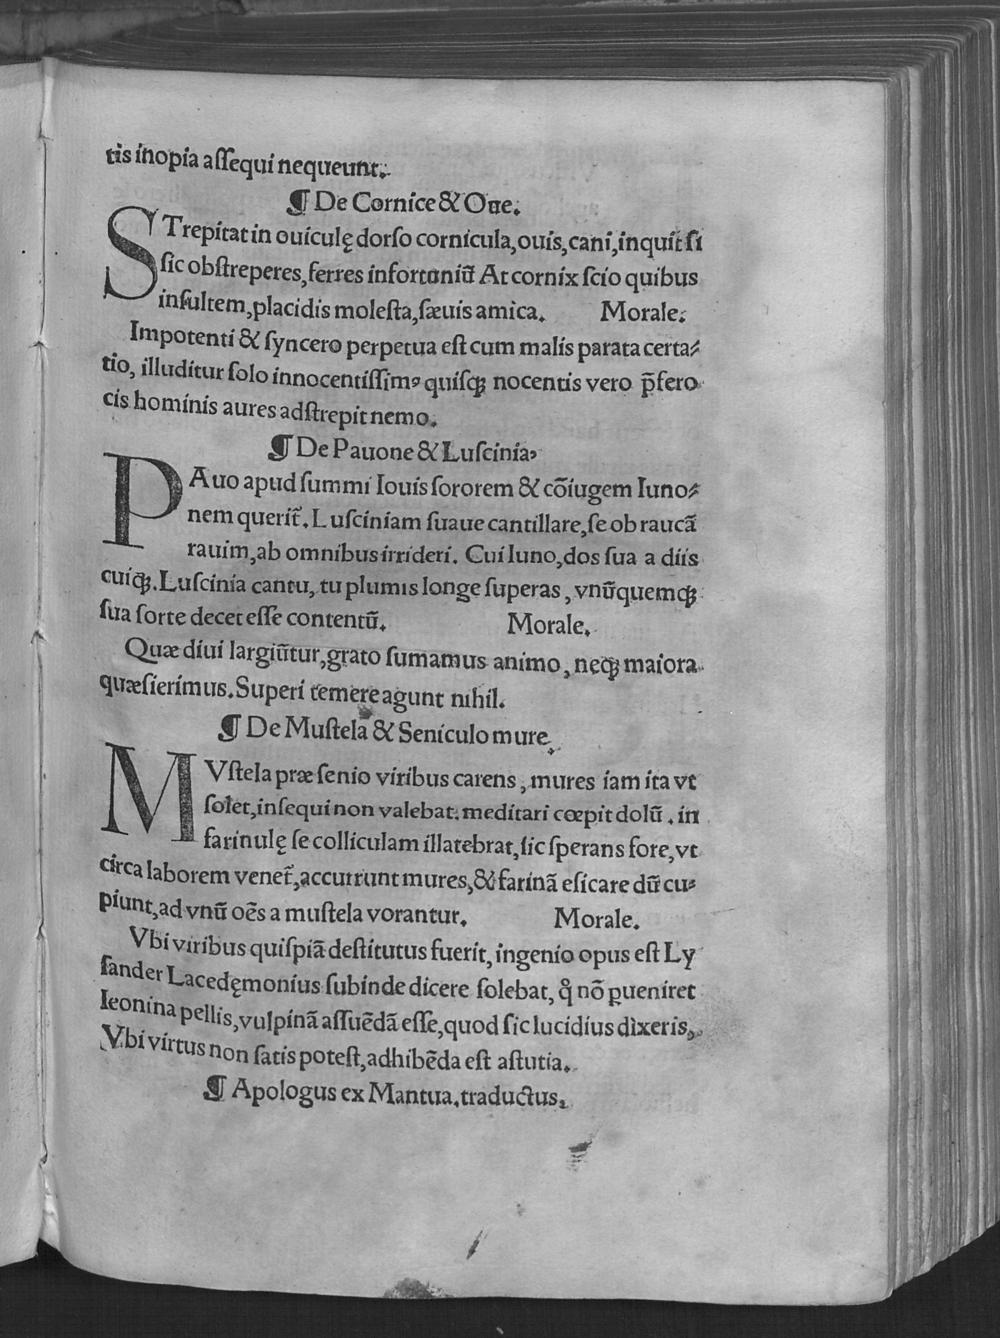 tis inopia aſſequi nequeunt.
¶ De Cornice & Oue.
STrepitat in ouiculę dorſo cornicula, ouis, cani, inquit ſi
ſic obſtreperes, ferres infortuniũ At cornix ſcio quibus
inſultem, placidis moleſta, ſæuis amica. Morale.
Impotenti & ſyncero perpetua eſt cum malis parata certa⸗
tio, illuditur ſolo innocentiſſimꝰ quiſqꝫ nocentis vero p̃fero
cis hominis aures adſtrepit nemo.
¶ De Pauone & Luſcinia,
PAuo apud ſummi Iouis ſororem & cõiugem Iuno⸗
nem querit᷑. Luſciniam ſuaue cantillare, ſe ob raucã
rauim, ab omnibus irrideri. Cui Iuno, dos ſua a diis
cuiqꝫ. Luſcinia cantu, tu plumis longe ſuperas, vnũquemqꝫ
ſua ſorte decet eſſe contentũ. Morale.
Quæ diui largiũtur, grato ſumamus animo, neqꝫ maiora
quæſierimus. Superi temere agunt nihil.
¶ De Muſtela & Seniculo mure.
MVſtela præ ſenio viribus carens, mures iam ita vt
ſolet, inſequi non valebat. meditari cœpit dolũ. in
farinulę ſe colliculam illatebrat, ſic ſperans fore, vt
circa laborem venet᷑, accurrunt mures, & farinã eſicare dũ cu⸗
piunt, ad vnũ oẽs a muſtela vorantur. Morale.
Vbi viribus quiſpiã deſtitutus fuerit, ingenio opus eſt Ly
ſander Lacedęmonius ſubinde dicere ſolebat, ꝙ nõ ꝑueniret
leonina pellis, vulpinã aſſuẽdã eſſe, quod ſic lucidius dixeris,
Vbi virtus non ſatis poteſt, adhibẽda eſt aſtutia.
¶ Apologus ex Mantua. traductus.